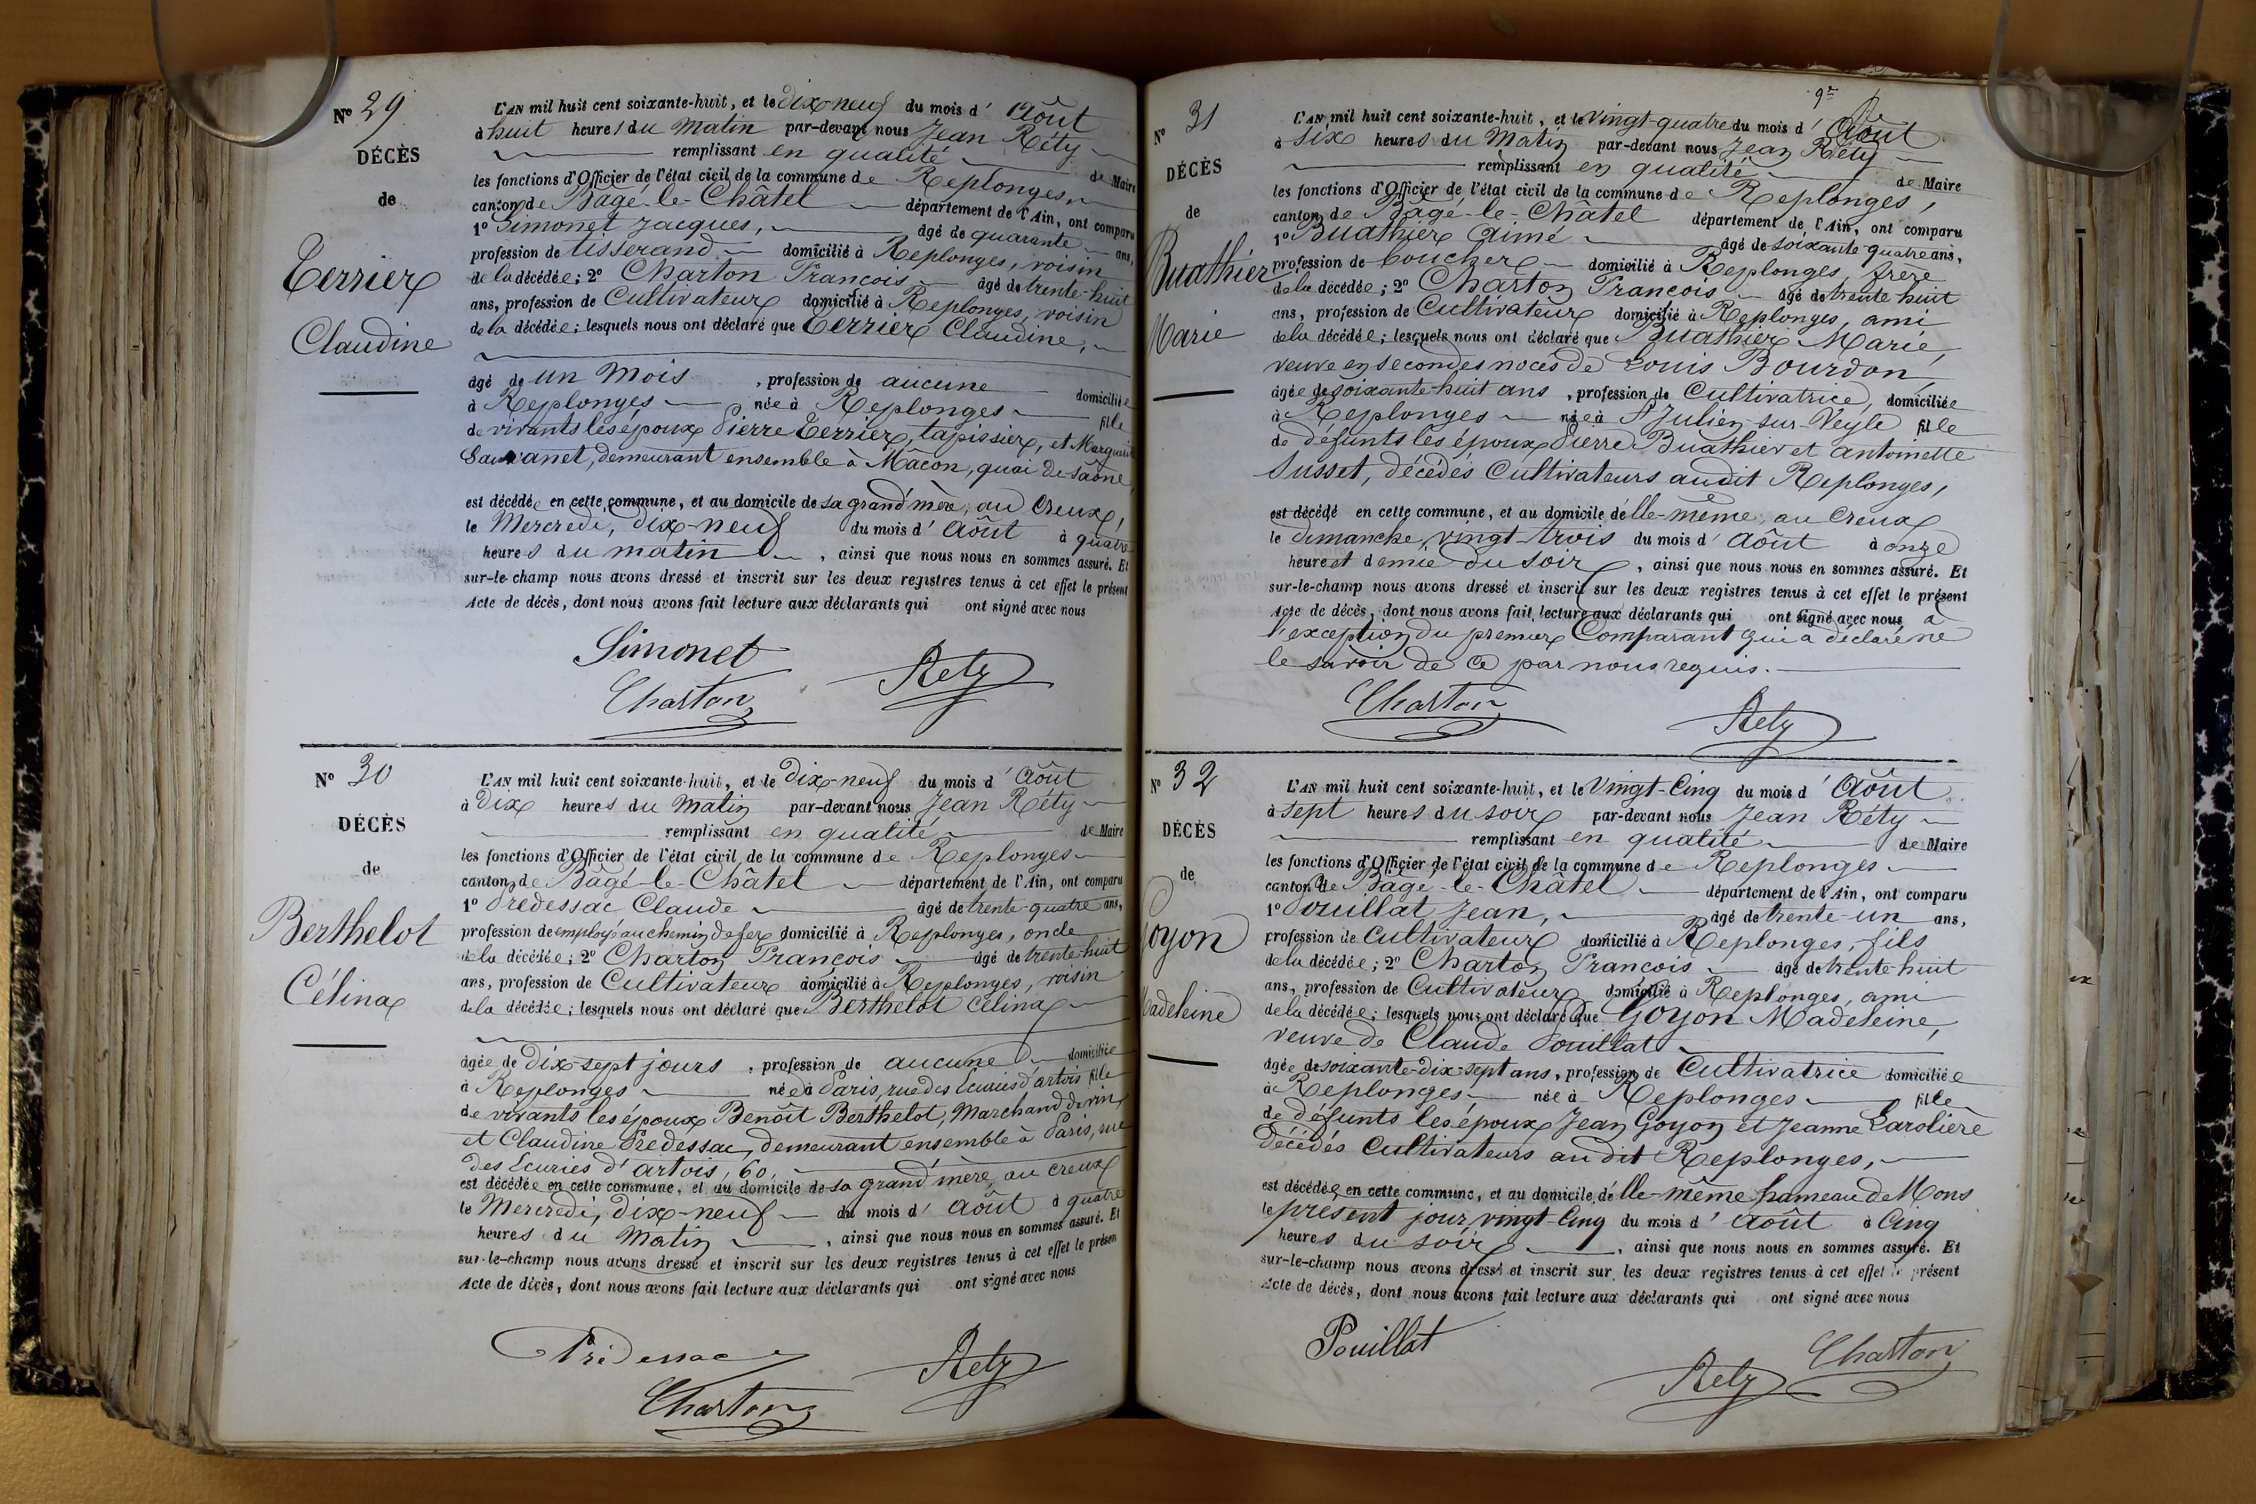 Nº 29
DÉCÈS
de
Terrier
Claudine
L'AN mil huit cent soixante-huit, et le dix-neuf du mois d'Août
à huit heures du matin par-devant nous Jean Réty
remplissant en qualité de Maire
les fonctions d'Officier de l'état civil de la commune de Replonges,
canton de Bâgé-le-Châtel département de l'Ain, ont comparu
1º Simonet Jacques, âgé de quarante ans,
profession de tisserand domicilié à Replonges, voisin
de la décédée; 2º Charton François âgé de trente-huit
ans, profession de Cultivateur domicilié à Replonges, voisin
de la décédée; lesquels nous ont déclaré que Terrier Claudine,
âgé de un mois, profession de aucune domiciliée
à Replonges née à Replonges fille
de vivants les époux Pierre Terrier, tapissier, et Marguerite
demeurant ensemble à Mâcon, quai de Saône,
est décédée en cette commune, et au domicile de sa grand'mère, au Creux,
le Mercredi, dix-neuf du mois d'Août à quatre
heures du matin, ainsi que nous nous en sommes assuré. Et
sur-le-champ nous avons dressé et inscrit sur les deux registres tenus à cet effet le présent
Acte de décès, dont nous avons fait lecture aux déclarants qui ont signé avec nous
Simonet
Charton
Rety
Nº 30
DÉCÈS
de
Berthelot
Célina
L'AN mil huit cent soixante-huit, et le dix-neuf du mois d'Août
à dix heures du matin par-devant nous Jean Réty
remplissant en qualité de Maire
les fonctions d'Officier de l'état civil de la commune de Replonges
canton de Bâgé-le-Châtel département de l'Ain, ont comparu
1º Predessac Claude âgé de trente-quatre ans,
profession de employé au chemin de fer domicilié à Replonges, oncle
de la décédée; 2º Charton François âgé de trente-huit
ans, profession de Cultivateur domicilié à Replonges, voisin
de la décédée; lesquels nous ont déclaré que Berthelot Célina
âgée de dix-sept jours, profession de aucune domiciliée
à Replonges née à Paris, rue des Écuries d'artois fille
de vivants les époux Benoît Berthelot, Marchand de vin,
et Claudine Predessac, demeurant ensemble à Paris, rue
des Écuries d'artois, 60,
est décédée en cette commune, et au domicile de sa grand'mère, au Creux
le Mercredi, dix-neuf du mois d'Août à quatre
heures du matin, ainsi que nous nous en sommes assuré. Et
sur-le-champ nous avons dressé et inscrit sur les deux registres tenus à cet effet le présen
Acte de décès, dont nous avons fait lecture aux déclarants qui ont signé avec nous
Prédessac
Charton
Rety
9e
Nº 31
DÉCÈS
de
Buathier
Marie
L'AN mil huit cent soixante-huit, et le vingt-quatre du mois d'Août
à six heures du matin par-devant nous Jean Réty
remplissant en qualité de Maire
les fonctions d'Officier de l'état civil de la commune de Replonges,
canton de Bâgé-le-Châtel département de l'Ain, ont comparu
1º Buathier Aimé âgé de soixante-quatre ans,
profession de boucher domicilié à Replonges, frère
de la décédée; 2º Charton François âgé de trente-huit
ans, profession de Cultivateur domicilié à Replonges, ami
de la décédée; lesquels nous ont déclaré que Buathier Marie,
veuve en secondes noces de Louis Bourdon,
âgée de soixante-huit ans, profession de Cultivatrice, domiciliée
à Replonges née à St Julien-sur-Veyle fille
de défunts les époux Pierre Buathier et antoinette
Susset, décédés Cultivateurs audit Replonges,
est décédé en cette commune, et au domicile d'elle-même, au Creux
le dimanche, vingt-trois du mois d'Août à onze
heures et demie du soir, ainsi que nous nous en sommes assuré. Et
sur-le-champ nous avons dressé et inscrit sur les deux registres tenus à cet effet le présent
Acte de décès, dont nous avons fait lecture aux déclarants qui ont signé avec nous à
l'exception du premier Comparant qui a déclaré ne
le savoir de ce par nous requis.
Charton
Rety
Nº 32
DÉCÈS
de
Goyon
Madeleine
L'AN mil huit cent soixante-huit, et le Vingt-Cinq du mois d'Août
à sept heures du soir par-devant nous Jean Réty
remplissant en qualité de Maire
les fonctions d'Officier de l'état civil de la commune de Replonges
canton de Bâgé-le-Châtel département de l'Ain, ont comparu
1º Pouillat Jean, âgé de trente-un ans,
profession de Cultivateur domicilié à Replonges, fils
de la décédée; 2º Charton François âgé de trente-huit
ans, profession de Cultivateur domicilié à Replonges, ami
de la décédée; lesquels nous ont déclaré que Goyon Madeleine,
veuve de Claude Pouillat
âgée de soixante-dix-sept ans, profession de Cultivatrice domiciliée
à Replonges née à Replonges fille
de défunts les époux Jean Goyon et Jeanne Larolière
Décédés Cultivateurs audit Replonges,
est décédée en cette commune, et au domicile d'elle-même hameau de Mons
le présent jour, vingt-Cinq du mois d'Août à Cinq
heures du soir, ainsi que nous nous en sommes assuré. Et
sur-le-champ nous avons dressé et inscrit sur les deux registres tenus à cet effet le présent
Acte de décès, dont nous avons fait lecture aux déclarants qui ont signé avec nous
Pouillat
Rety
Charton